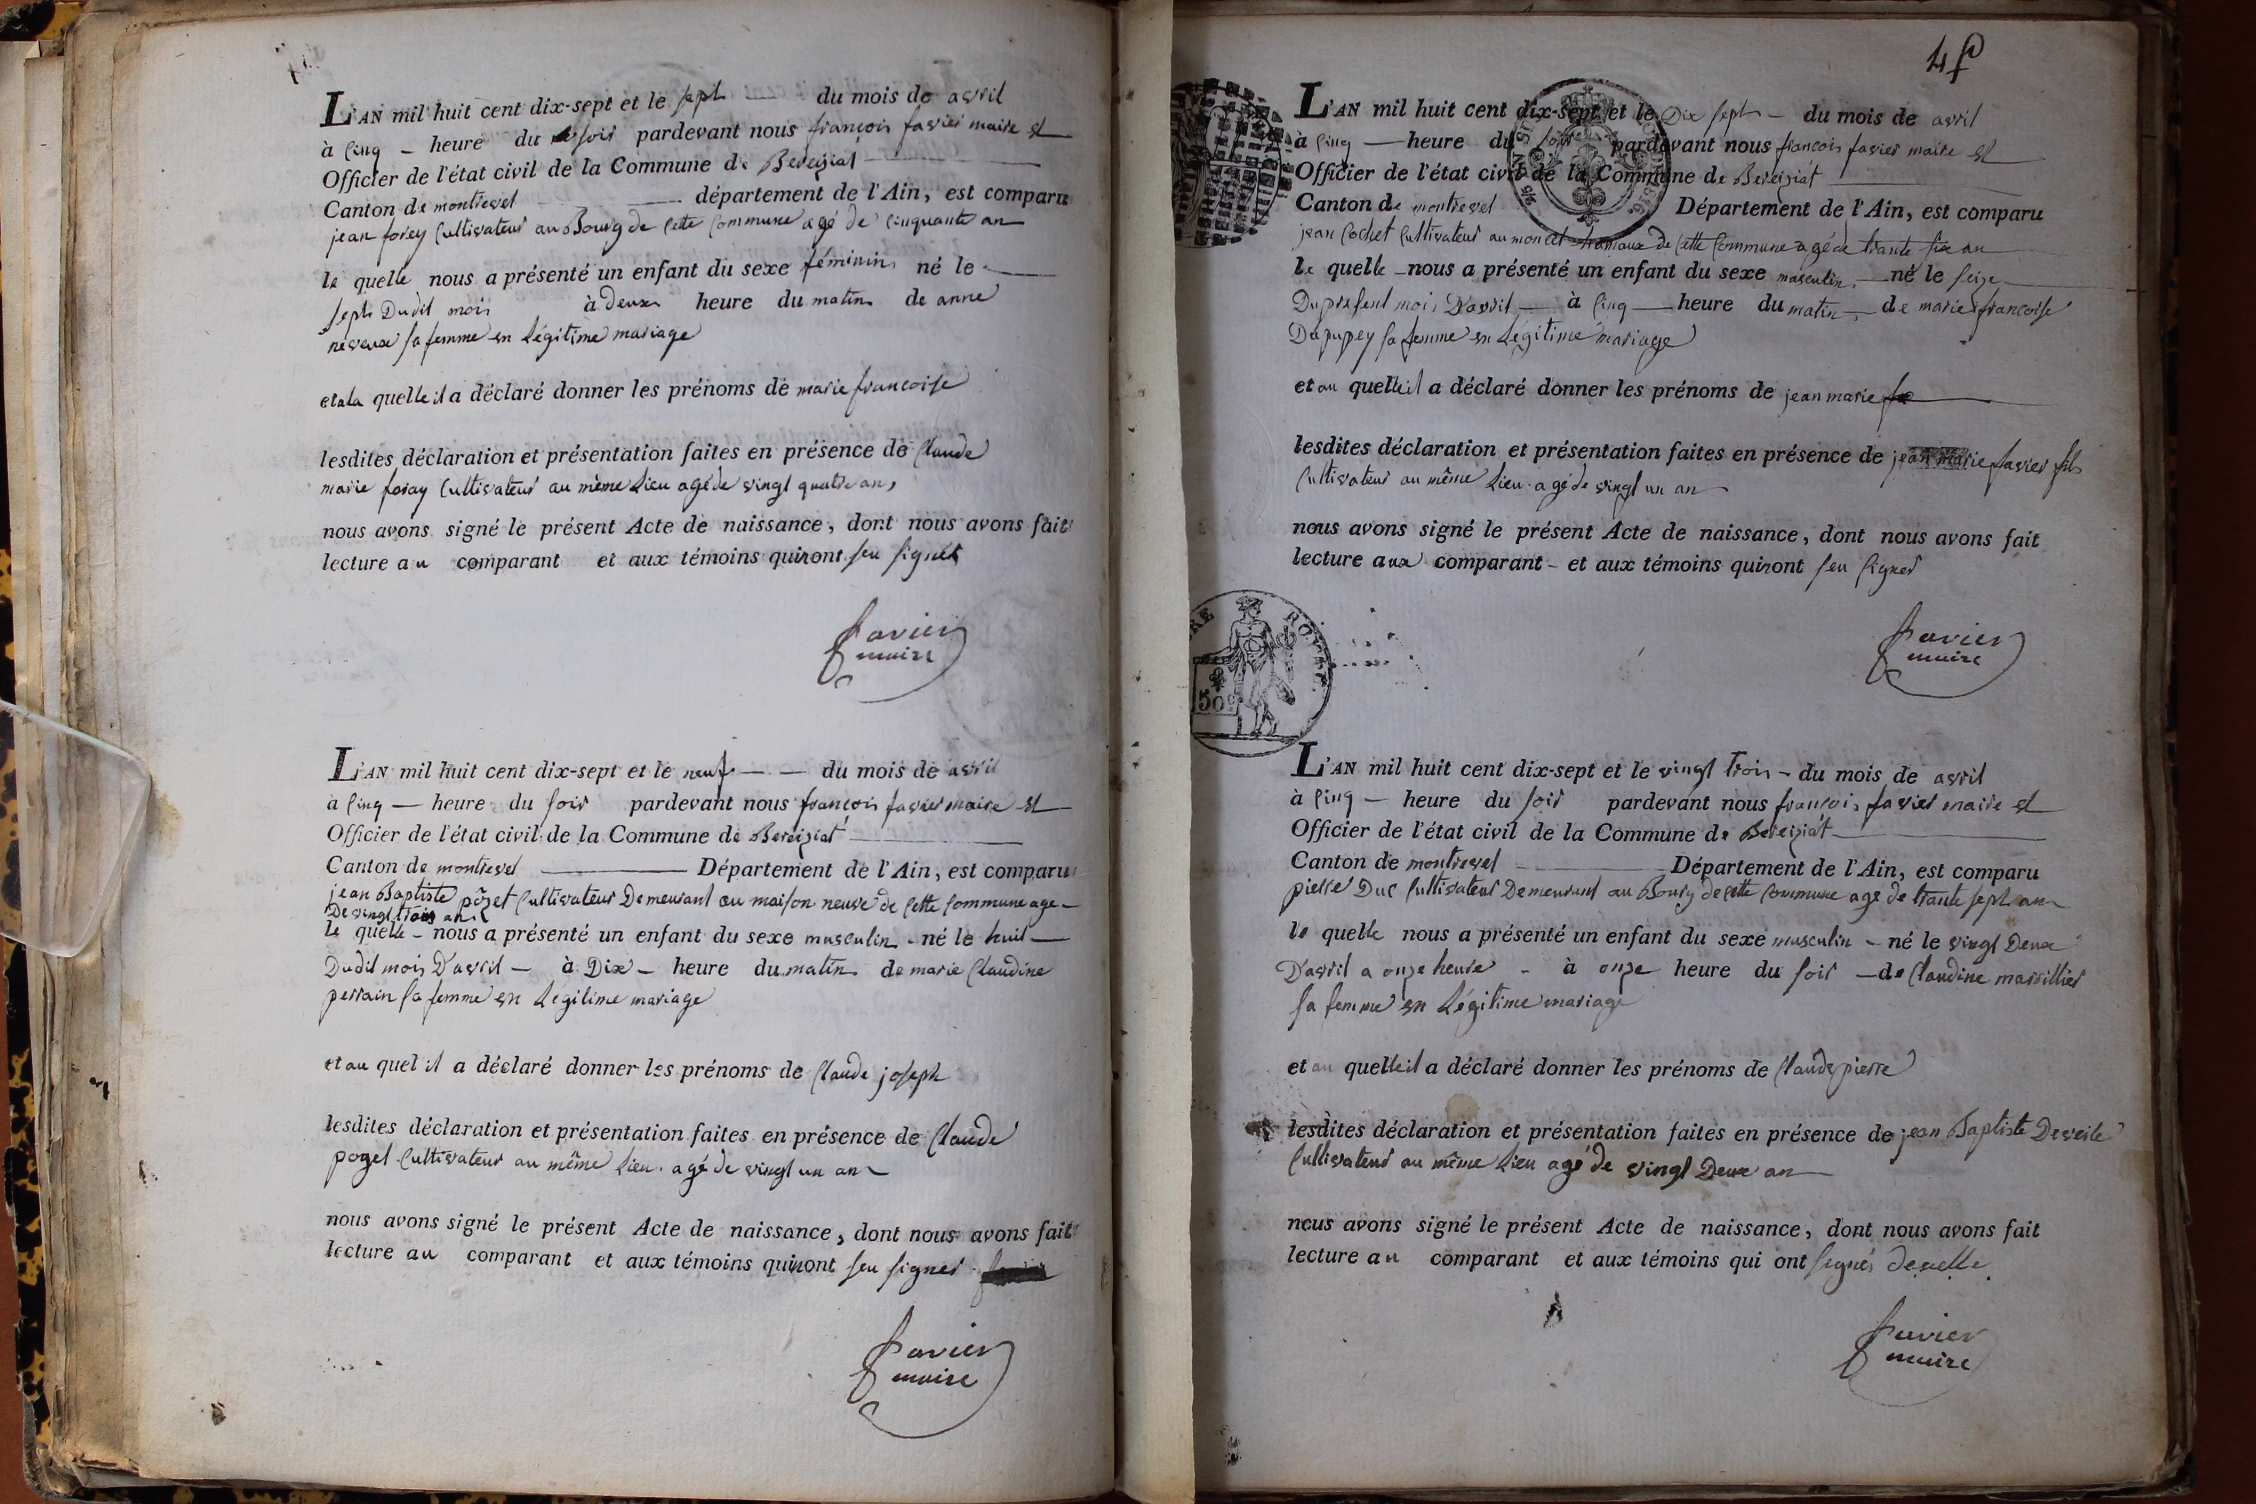 L'AN mil huit cent dix-sept et le sept du mois de avril
à cinq heure du soir pardevant nous françois favier maire et
Officier de l'état civil de la Commune de Bereiziat
Canton de montrevel département de l'Ain, est comparu
jean forey cultivateur au Bourg de cette commune agé de cinquante an
le quelle nous a présenté un enfant du sexe féminin né le
sept Dudit mois à deux heure du matin de anne
neveux sa femme en légitime mariage
et a la quelle il a déclaré donner les prénoms de marie francoise
lesdites déclaration et présentation faites en présence de Claude
marie foray cultivateur au même lieu agé de vingt quatre an,
nous avons signé le présent Acte de naissance, dont nous avons fait
lecture au comparant et aux témoins qui nont seu signés
favier
maire
L'AN mil huit cent dix-sept et le neuf du mois de avril
à cinq heure du soir pardevant nous françois favier maire et
Officier de l'état civil de la Commune de Bereiziat
Canton de montrevel Département de l'Ain, est comparu
jean Baptiste pôzet cultivateur Demeurant au maison neuve de cette commune age
De vingt trois ans
le quelle nous a présenté un enfant du sexe masculin né le huit
Dudit mois D'avril à Dix heure du matin de marie Claudine
perrain sa femme en Legitime mariage
et au quel il a déclaré donner les prénoms de Claude joseph
lesdites déclaration et présentation faites en présence de Claude
pozet cultivateur au même lieu agé de vingt un an
nous avons signé le présent Acte de naissance, dont nous avons fait
lecture au comparant et aux témoins qui nont seu signer
favier
maire
L'AN mil huit cent dix-sept et le Dix sept du mois de avril
à cinq heure du soir pardevant nous francois favier maire et
Officier de l'état civil de la Commune de Bereiziat
Canton de montrevel Département de l'Ain, est comparu
jean Cochet cultivateur au moncel hamaux de cette commune agé de trante six an
le quelle nous a présenté un enfant du sexe masculin né le seize
Du present mois D'avril à cinq heure du matin de marie francoise
Dupupey sa femme en Légitime mariage
et au quelle il a déclaré donner les prénoms de jean marie
lesdites déclaration et présentation faites en présence de jean marie favier fils
cultivateur au même lieu agé de vingt un an
nous avons signé le présent Acte de naissance, dont nous avons fait
lecture aux comparant et aux témoins qui nont seu signer
favier
maire
RE ROYAL
50c
L'AN mil huit cent dix-sept et le vingt trois du mois de avril
à cinq heure du soir pardevant nous francois favier maire et
Officier de l'état civil de la Commune de Bereiziat
Canton de montrevel Département de l'Ain, est comparu
pierre Duc cultivateur Demeurant au Bourg de cette commune agé de trante sept an
le quelle nous a présenté un enfant du sexe masculin né le vingt Deux
D'avril a onze heure à onze heure du soir de Claudine marvillier
sa femme en Légitime mariage
et au quelle il a déclaré donner les prénoms de Claude pierre
lesdites déclaration et présentation faites en présence de jean Baptiste Deveile
cultivateur au même lieu agé de vingt Deux an
nous avons signé le présent Acte de naissance, dont nous avons fait
lecture au comparant et aux témoins qui ont signés develle
favier
maire